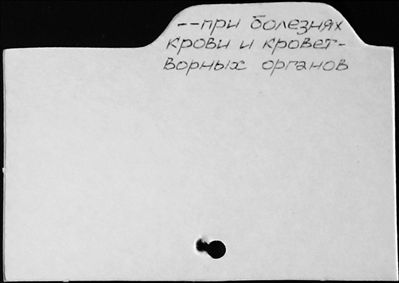 --при болезнях
крови и кровет-
ворных органов